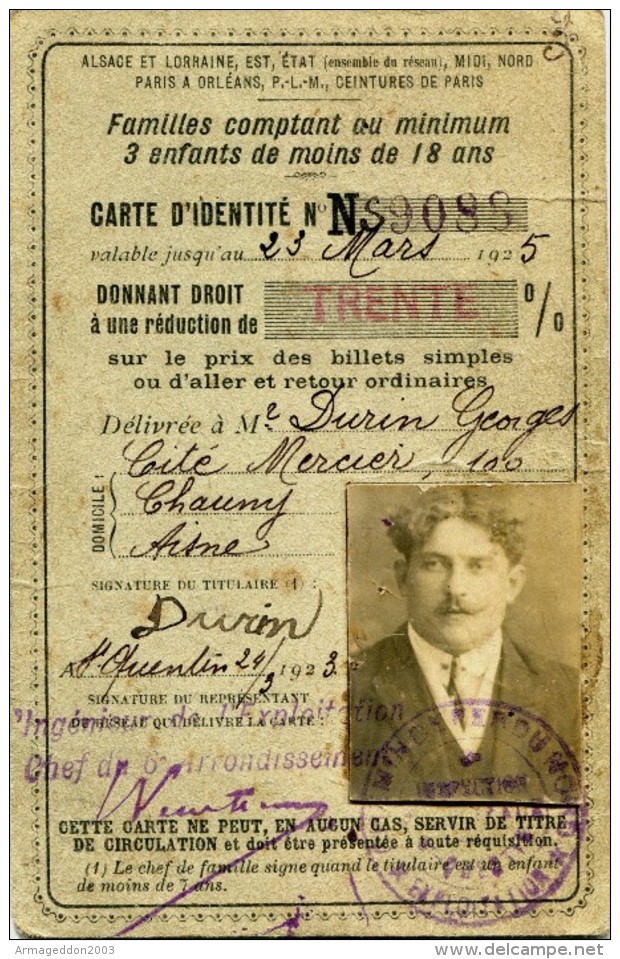 ALSACE ET LORRAINE, EST, ÉTAT (ensemble du réseau), MIDI, NORD
PARIS A ORLÉANS, P.-L.-M., CEINTURES DE PARIS
Familles comptant au minimum
3 enfants de moins de 18 ans
CARTE D'IDENTITÉ N° NS9088
valable jusqu'au 23 Mars 1925
DONNANT DROIT
à une réduction de TRENTE %
sur le prix des billets simples
ou d'aller et retour ordinaires
Délivrée à Mr Durin Georges
DOMICILE :
Cité Mercier, 100
Chauny
Aisne
SIGNATURE DU TITULAIRE (1) :
Durin
A St Quentin 24/3 1923.
SIGNATURE DU REPRÉSENTANT
DU RÉSEAU QUI DÉLIVRE LA CARTE :
l'Ingénieur de l'Exploitation
Chef du 6e Arrondissement
INSPECTION
EXPLOITATION
CETTE CARTE NE PEUT, EN AUCUN CAS, SERVIR DE TITRE
DE CIRCULATION et doit être présentée à toute réquisition.
(1) Le chef de famille signe quand le titulaire est un enfant
de moins de 7 ans.
Armageddon2003
www.delcampe.net